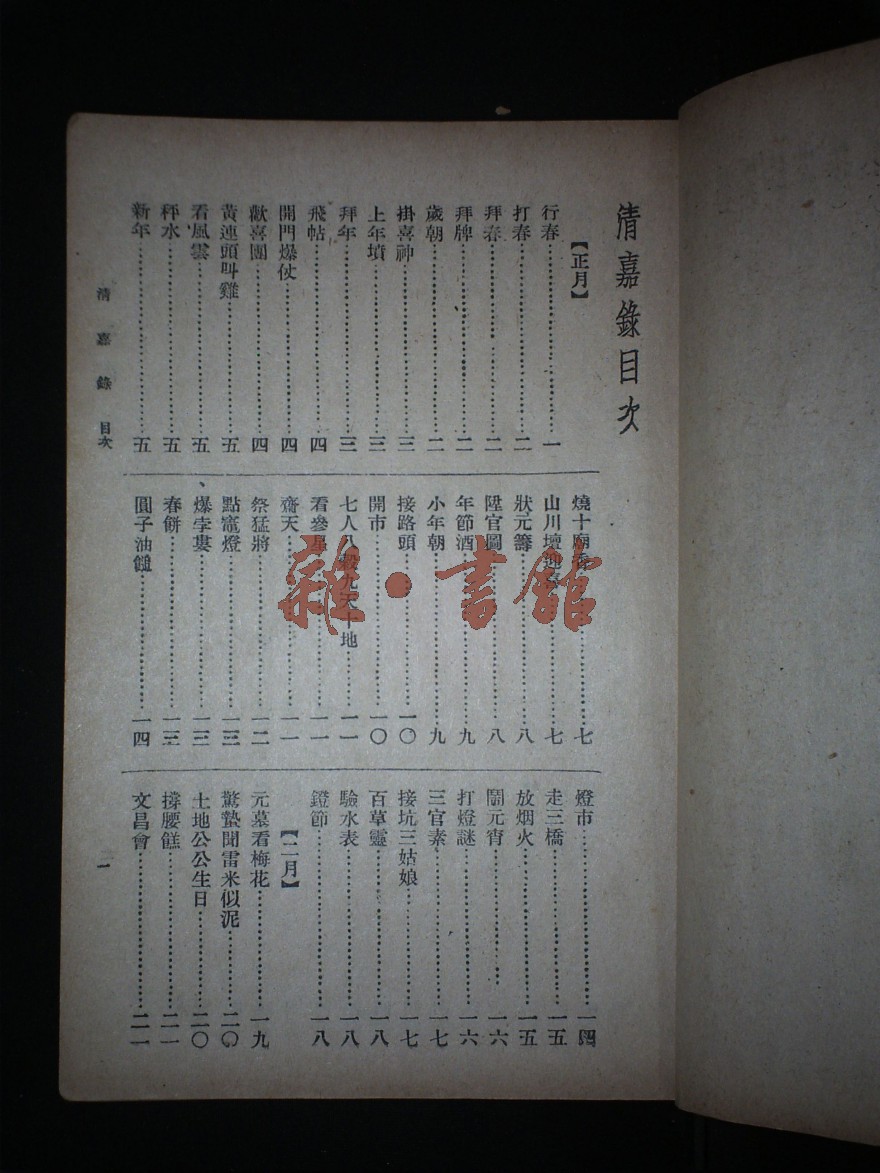 清嘉錄目次
【正月】
行春……一
打春……二
拜春……二
拜牌……二
歲朝……二
掛喜神……三
上年墳……三
拜年……三
飛帖……四
開門爆仗……四
歡喜團……四
黃連頭叫雞……五
看風雲……五
秤水……五
新年……五
燒十廟香……七
山川壇迎喜……七
狀元籌……八
陞官圖……八
年節酒……九
小年朝……九
接路頭……一〇
開市……一〇
七人八穀九天十地……一一
看參星……一一
齋天……一一
祭猛將……一二
點竈燈……一三
爆孛婁……一三
春餅……一三
圓子油䭔……一四
燈市……一四
走三橋……一五
放烟火……一五
鬧元宵……一六
打燈謎……一六
三官素……一七
接坑三姑娘……一七
百草靈……一八
驗水表……一八
鐙節……一八
【二月】
元墓看梅花……一九
驚蟄聞雷米似泥……二〇
土地公公生日……二〇
撐腰餻……二一
文昌會……二一
清嘉錄 目次
一
雜·書館